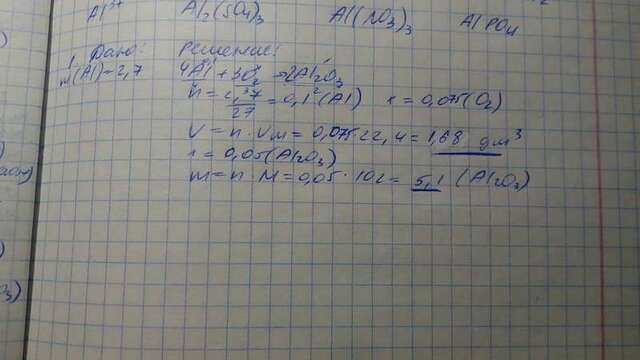 Al³⁺ Al₂(SO₄)₃ Al(NO₃)₃ AlPO₄
1 Дано: Решение:
m(Al)=2,7 4Al + 3O₂ → 2Al₂O₃
n = 2,7/27 = 0,1 (Al) x = 0,075(O₂)
V = n · Vм = 0,075 · 22,4 = 1,68 дм³
x = 0,05(Al₂O₃)
m = n · M = 0,05 · 102 = 5,1 (Al₂O₃)